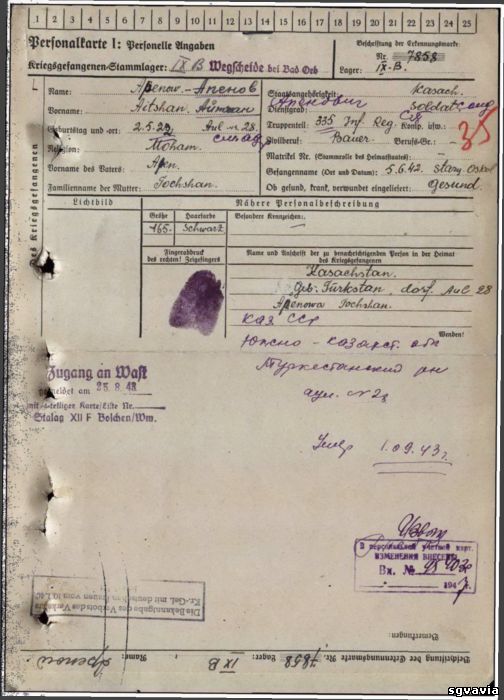 1 2 3 4 5 6 7 8 9 10 11 12 13 14 15 16 17 18 19 20 21 22 23 24 25
Personalkarte I: Personelle Angaben
Beschriftung der Erkennungsmarke:
Nr. 7858
Kriegsgefangenen-Stammlager: IX B Wegscheide bei Bad Orb
Lager: IX-B.
Des Kriegsgefangenen
Name: Apenow - Апенов
Staatsangehörigkeit: Kasach.
Vorname: Aitshan
Dienstgrad: Soldat
Geburtstag und -ort: 2.5.23 Aul nr 28.
Truppenteil: 335 Inf. Reg. Komp. usw.:
Religion: Moham.
Zivilberuf: Bauer Berufs-Gr.:
Matrikel Nr. (Stammrolle des Heimatstaates):
Vorname des Vaters: Apen.
Gefangennahme (Ort und Datum): 5.6.42. Stary Oskol
Familienname der Mutter: Tochshan.
Ob gesund, krank, verwundet eingeliefert: Gesund.
Lichtbild
Nähere Personalbeschreibung
Größe Haarfarbe Besondere Kennzeichen:
165 Schwarz
Fingerabdruck
des rechten! Zeigefingers
Name und Anschrift der zu benachrichtigenden Person in der Heimat
des Kriegsgefangenen
Kasachstan.
geb. Turkstan, dorf. Aul 28
Apenowa Tochshan.
Wenden!
Каз ССР
Южно - казахст. обл
Туркестанский рн
аул. №28
Zugang an Wast
gemeldet am 25.8.43
Stalag XII F Bolchen/Wm.
Умер 1.09.43 г.
В персональной учетной карт.
ИЗМЕНЕНИЯ ВНЕСЕНЫ
Вх. №
194 г.
Die Bekanntgabe des Verbots des Verkehrs
Kr.-Gef. mit deutschen Frauen vom 10.1.40
Bemerkungen:
Beschriftung der Erkennungsmarke Nr. 7858 Lager: IX B Name: Apenow
sgvavia